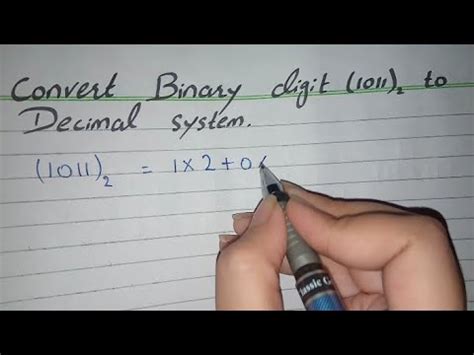 Convert Binary digit (1011)₂ to
Decimal system.
(1011)₂ = 1×2+0